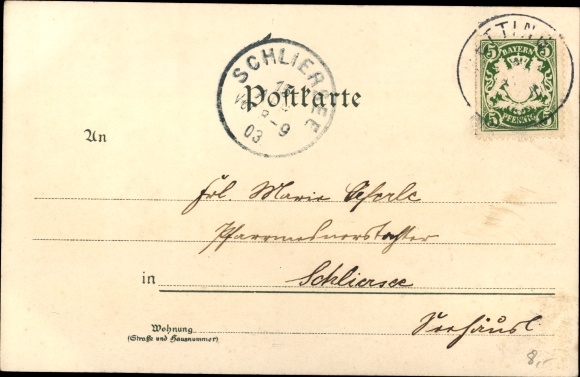 TTING
5 BAYERN 5
5 PFENNIG 5
SCHLIERSEE
8-9
03
Postkarte
An
Frl. Marie
Pfarrmesnerstochter
in Schliersee
Seehäusl
Wohnung
(Straße und Hausnummer)
8,-